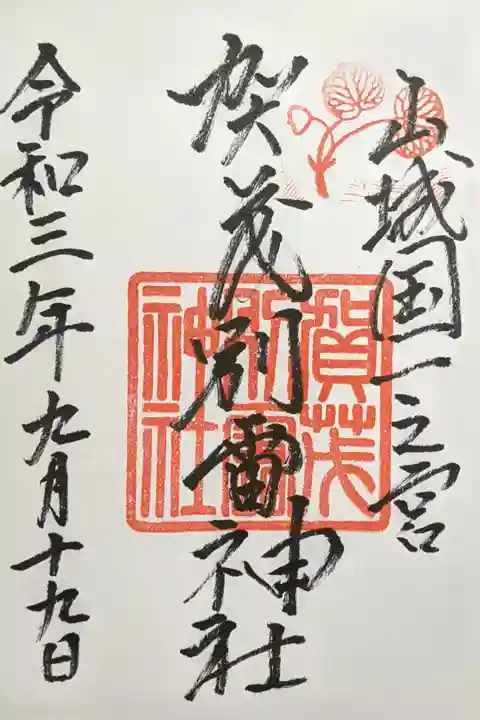 山城国一之宮
賀茂別雷神社
賀茂別雷神社
令和三年九月十九日